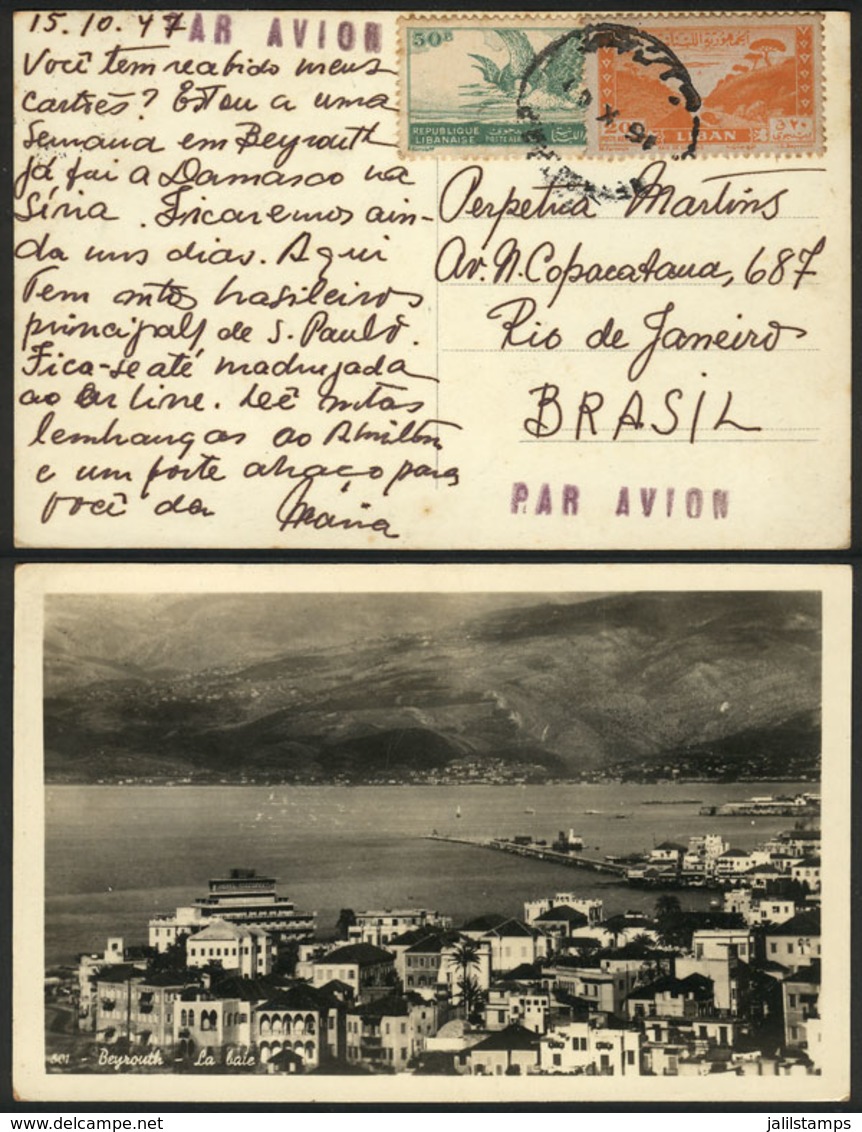 15.10.47
PAR AVION
Você tem recebido meus
cartões? Estou a uma
semana em Beyrouth
já fui a Damasco na
Síria. Ficaremos ain-
da uns dias. Aqui
tem mtos brasileiros
principalº de S. Paulo.
Fica-se até madrugada
ao ar livre. Dê mtas
lembranças ao Amilton
e um forte abraço para
você da Maria
50 P
REPUBLIQUE
LIBANAISE
POSTE AERIENNE
الجمهورية اللبنانية
20
LIBAN
٢٠
15 X
Perpetua Martins
Av. N. Copacabana, 687
Rio de Janeiro
BRASIL
PAR AVION
501 - Beyrouth - La baie
jalilstamps